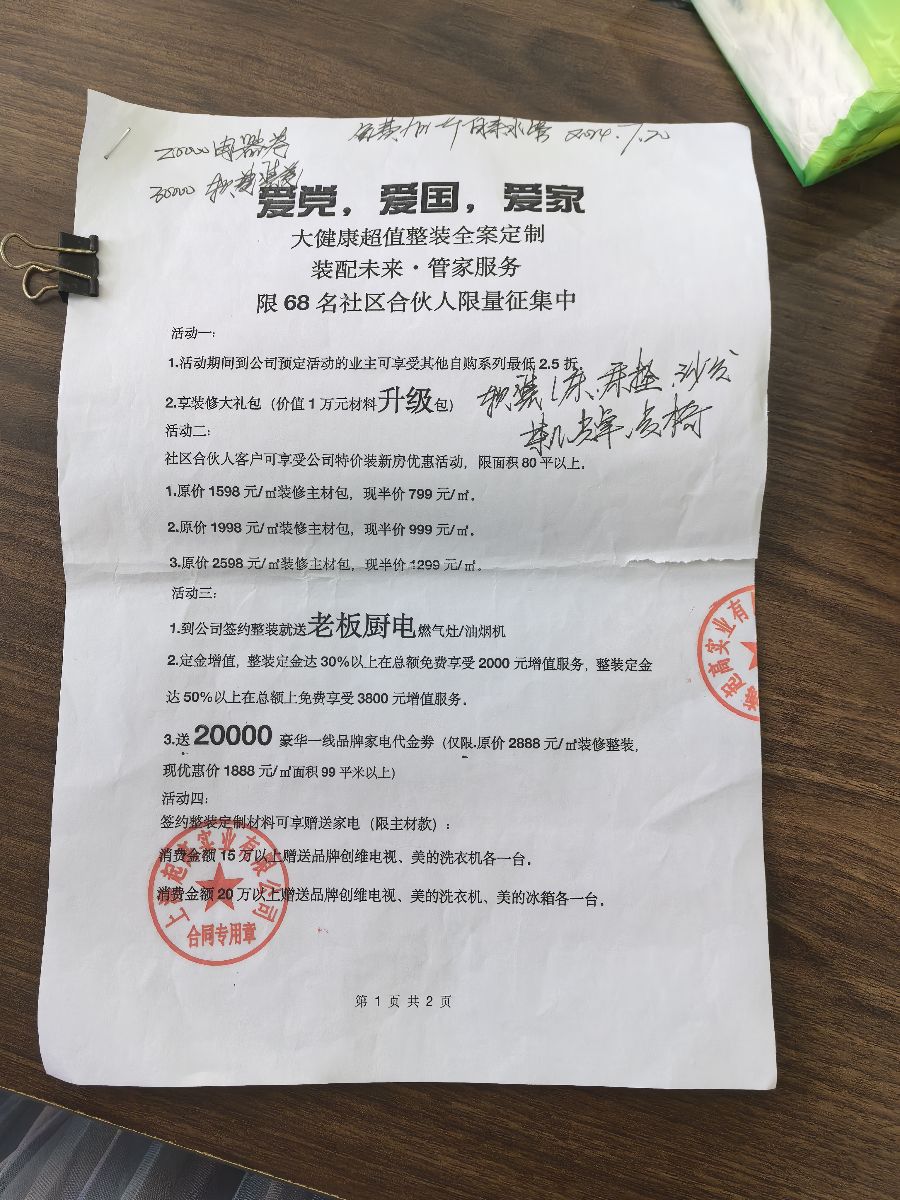 20000电器卷
30000 软装
2024.7.20
爱党，爱国，爱家
大健康超值整装全案定制
装配未来·管家服务
限 68 名社区合伙人限量征集中
活动一：
1.活动期间到公司预定活动的业主可享受其他自购系列最低 2.5 折，
2.享装修大礼包（价值 1 万元材料升级包）
软装（床、床垫、沙发
茶几
活动二：
社区合伙人客户可享受公司特价装新房优惠活动，限面积 80 平以上。
1.原价 1598 元/㎡装修主材包，现半价 799 元/㎡。
2.原价 1998 元/㎡装修主材包，现半价 999 元/㎡。
3.原价 2598 元/㎡装修主材包，现半价 1299 元/㎡。
活动三：
1.到公司签约整装就送老板厨电燃气灶/油烟机
2.定金增值，整装定金达 30%以上在总额免费享受 2000 元增值服务，整装定金
达 50%以上在总额上免费享受 3800 元增值服务。
3.送 20000 豪华一线品牌家电代金券（仅限.原价 2888 元/㎡装修整装，
现优惠价 1888 元/㎡面积 99 平米以上）
活动四：
签约整装定制材料可享赠送家电（限主材款）：
消费金额 15 万以上赠送品牌创维电视、美的洗衣机各一台。
消费金额 20 万以上赠送品牌创维电视、美的洗衣机、美的冰箱各一台。
上海起高实业有限公司
合同专用章
起高实业有
第 1 页 共 2 页